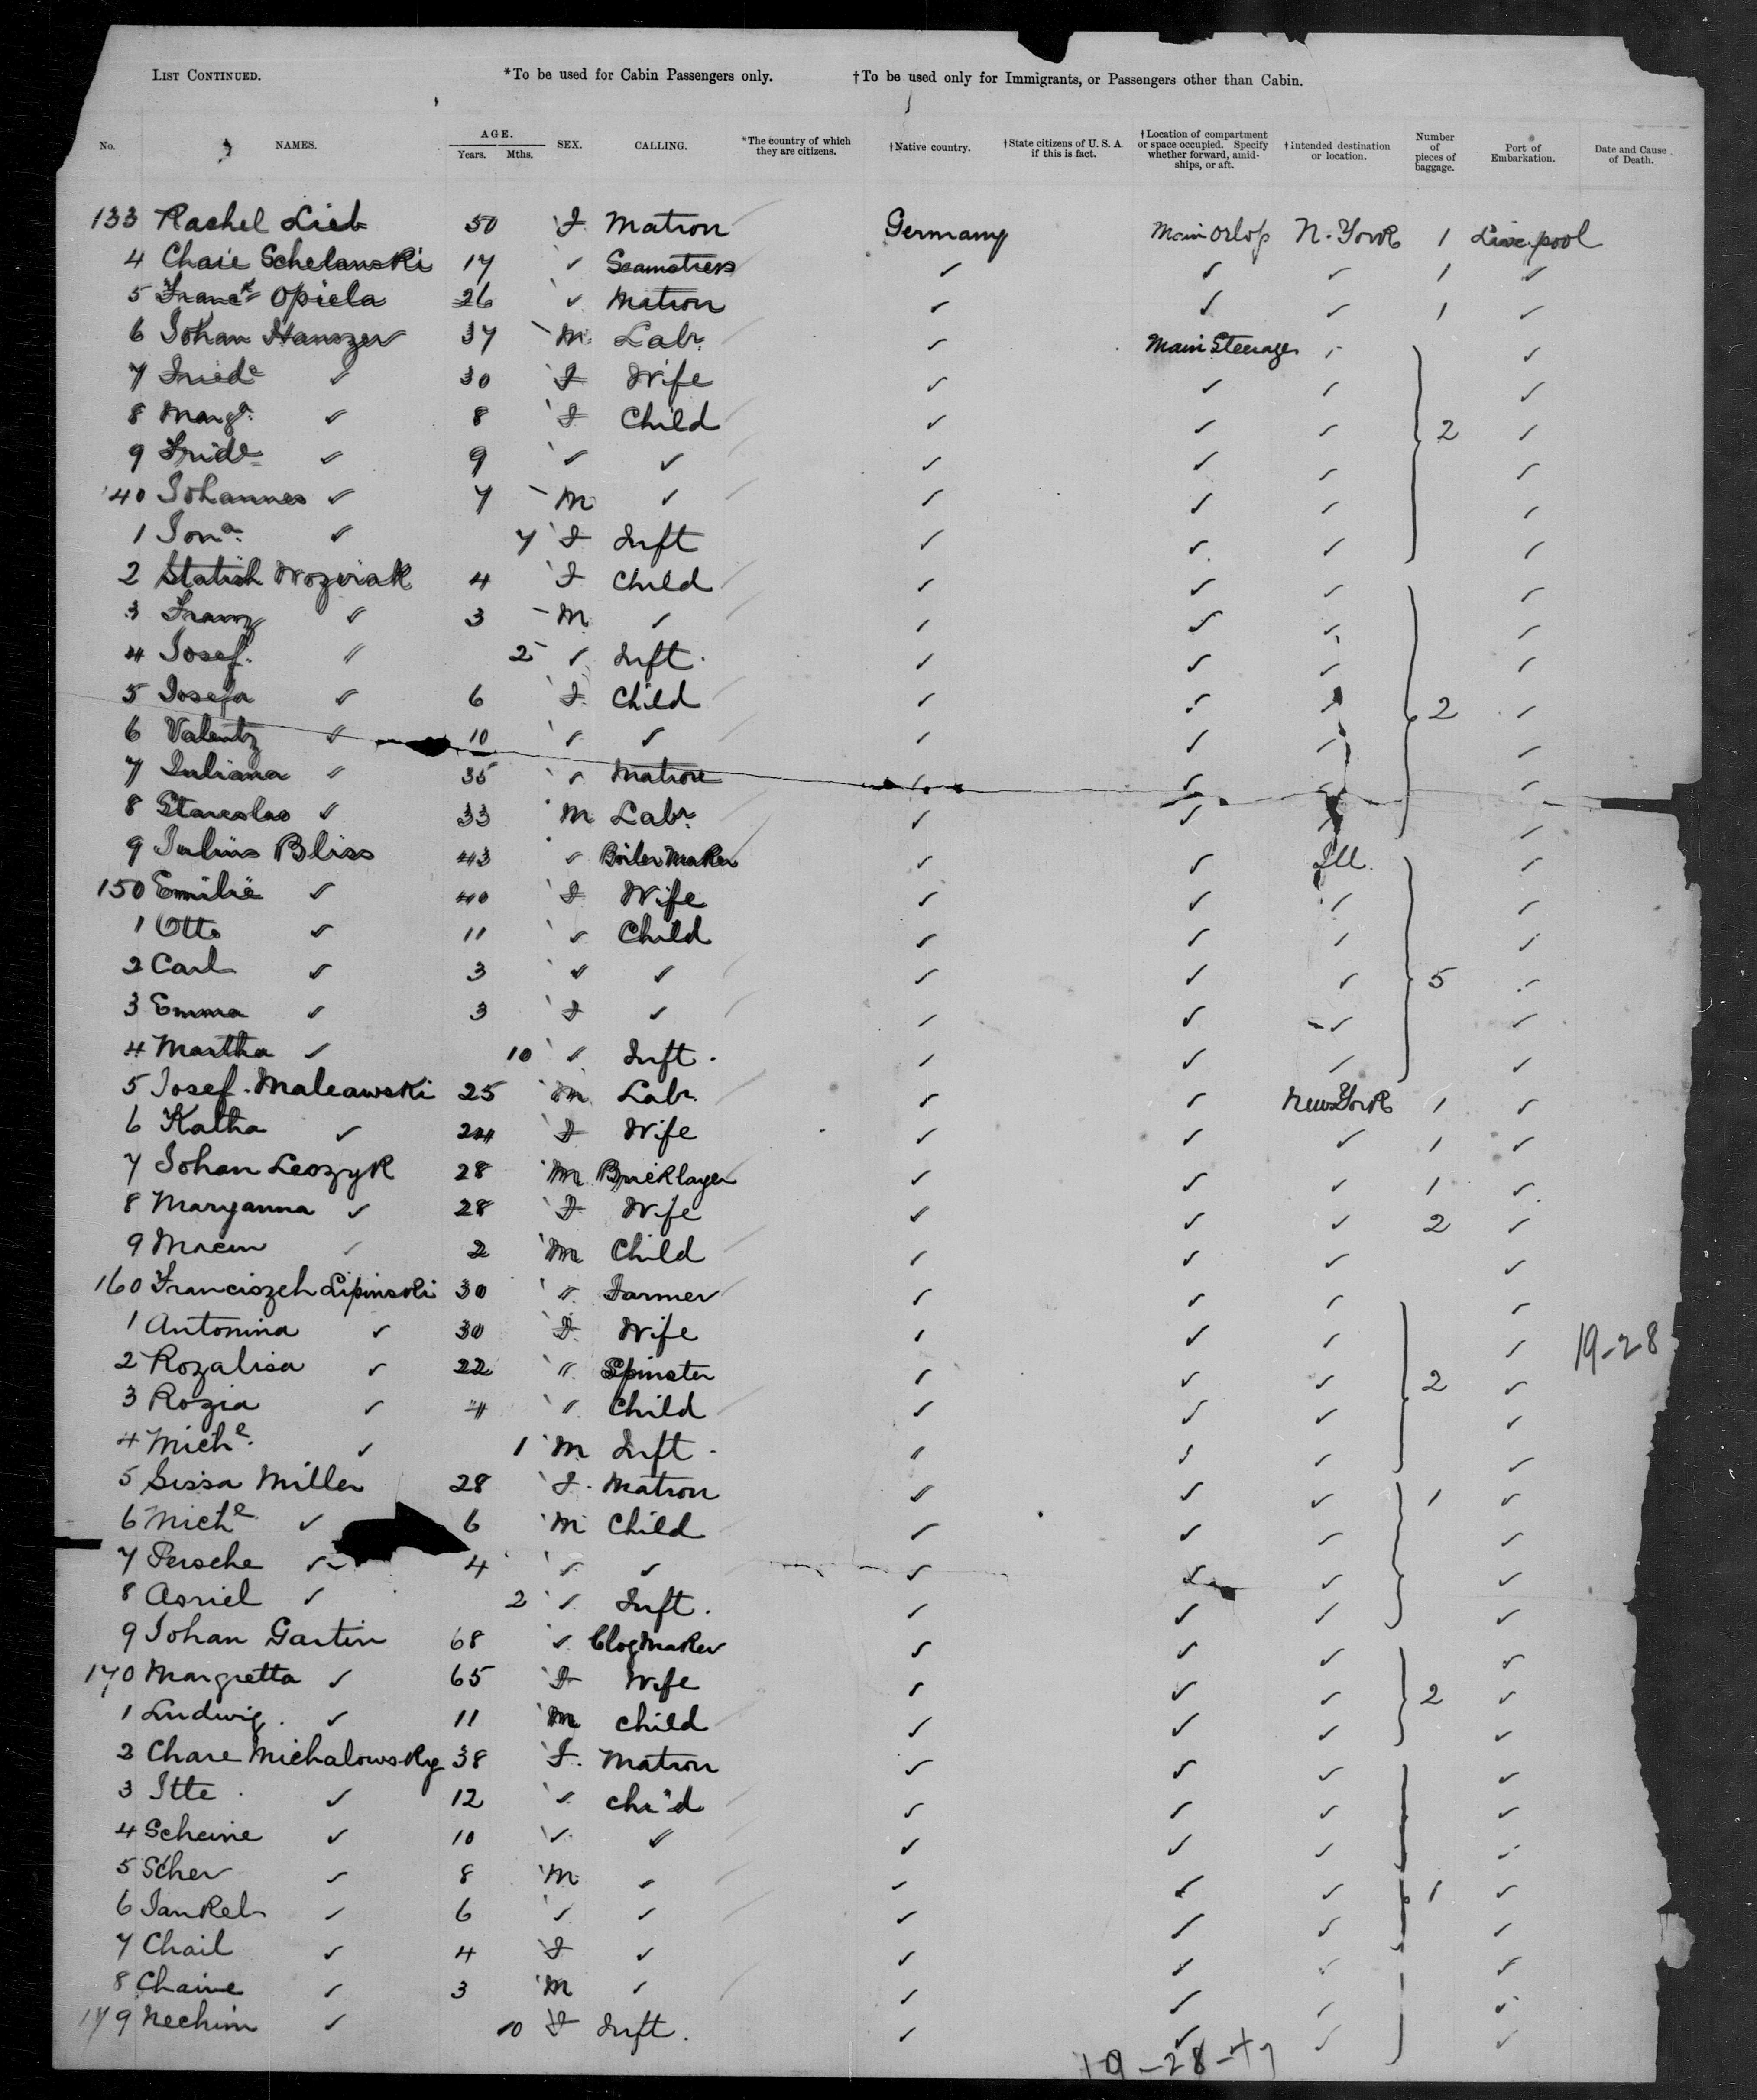 LIST CONTINUED. *To be used for Cabin Passengers only. †To be used only for Immigrants, or Passengers other than Cabin.
No. NAMES. AGE. Years. Mths. SEX. CALLING. *The country of which they are citizens. †Native country. †State citizens of U. S. A. if this is fact. †Location of compartment or space occupied. Specify whether forward, amidships, or aft. †Intended destination or location. Number of pieces of baggage. Port of Embarkation. Date and Cause of Death.
133 Rachel Lieb 50 F Matron Germany Main Orlop N. York 1 Liverpool
4 Chaie Schelanski 17 ✓ Seamstress ✓ ✓ ✓ 1 ✓
5 Opiela 26 ✓ Matron ✓ ✓ ✓ 1 ✓
6 Johan Hanszer 37 M. Labr. ✓ Main Steerage ✓ ✓
7 Friede ✓ 30 F Wife ✓ ✓ ✓ ✓
8 Marga. ✓ 8 F Child ✓ ✓ ✓ 2 ✓
9 Fride ✓ 9 ✓ ✓ ✓ ✓ ✓ ✓
140 Johannes ✓ 7 M ✓ ✓ ✓ ✓ ✓
1 Jona. ✓ 7 F Inft ✓ ✓ ✓ ✓
2 Statish Wozniak 4 F Child ✓ ✓ ✓ ✓
3 Franz ✓ 3 M ✓ ✓ ✓ ✓ ✓
4 Josef. " 2 ✓ Inft. ✓ ✓ ✓ ✓
5 Josefa ✓ 6 F. Child ✓ ✓ 2 ✓
6 Valentz ✓ 10 ✓ ✓ ✓ ✓ ✓ ✓
7 Juliana ✓ 35 ✓ Matron ✓ ✓ ✓
8 Stareslas ✓ 33 M Labr. ✓ ✓ ✓
9 Julius Bliss 43 ✓ Boiler Maker ✓ ✓ Ill. ✓
150 Emilie ✓ 40 F Wife ✓ ✓ ✓ ✓
1 Otto ✓ 11 ✓ Child ✓ ✓ ✓ ✓
2 Carl ✓ 3 ✓ ✓ ✓ ✓ ✓ 5 ✓
3 Emma ✓ 3 F ✓ ✓ ✓ ✓ ✓
4 Martha ✓ 10 ✓ Inft. ✓ ✓ ✓ ✓
5 Josef. Maleawski 25 M. Labr. ✓ ✓ New York 1 ✓
6 Katha ✓ 24 F Wife ✓ ✓ ✓ 1 ✓
7 Johan Leozyk 28 M Bricklayer ✓ ✓ ✓ 1 ✓
8 Maryanna ✓ 28 F Wife ✓ ✓ ✓ 2 ✓
9 ✓ 2 M Child ✓ ✓ ✓ ✓
160 Franciszeh Lipinski 30 " Farmer ✓ ✓ ✓ ✓
1 Antonina ✓ 30 F. Wife ✓ ✓ ✓ ✓ 19-28
2 Rozalisa ✓ 22 " Spinster ✓ ✓ ✓ 2 ✓
3 Rozia ✓ 4 " Child ✓ ✓ ✓ ✓
4 Michl. ✓ 1 M Inft. " ✓ ✓ ✓
5 Sissa Miller 28 F. Matron ✓ ✓ ✓ 1 ✓
6 Michl ✓ 6 M Child ✓ ✓ ✓ ✓
7 Persche ✓ 4 ✓ ✓ ✓ ✓ ✓ ✓
8 Asriel ✓ 2 ✓ Inft. ✓ ✓ ✓ ✓
9 Johan Gartin 68 ✓ Clog Maker ✓ ✓ ✓ ✓
170 Margretta ✓ 65 F Wife ✓ ✓ ✓ 2 ✓
1 Ludwig. ✓ 11 M child ✓ ✓ ✓ ✓
2 Chare Michalowsky 38 F. Matron ✓ ✓ ✓ ✓
3 Itte ✓ 12 ✓ child ✓ ✓ ✓ ✓
4 Scheine ✓ 10 ✓ ✓ ✓ ✓ ✓ ✓
5 Scher ✓ 8 M ✓ ✓ ✓ ✓ 1 ✓
6 Jankel ✓ 6 ✓ ✓ ✓ ✓ ✓ ✓
7 Chail ✓ 4 F ✓ ✓ ✓ ✓ ✓
8 Chaine ✓ 3 M ✓ ✓ ✓ ✓ ✓
179 Nechim ✓ 10 F Inft. ✓ ✓ ✓ ✓